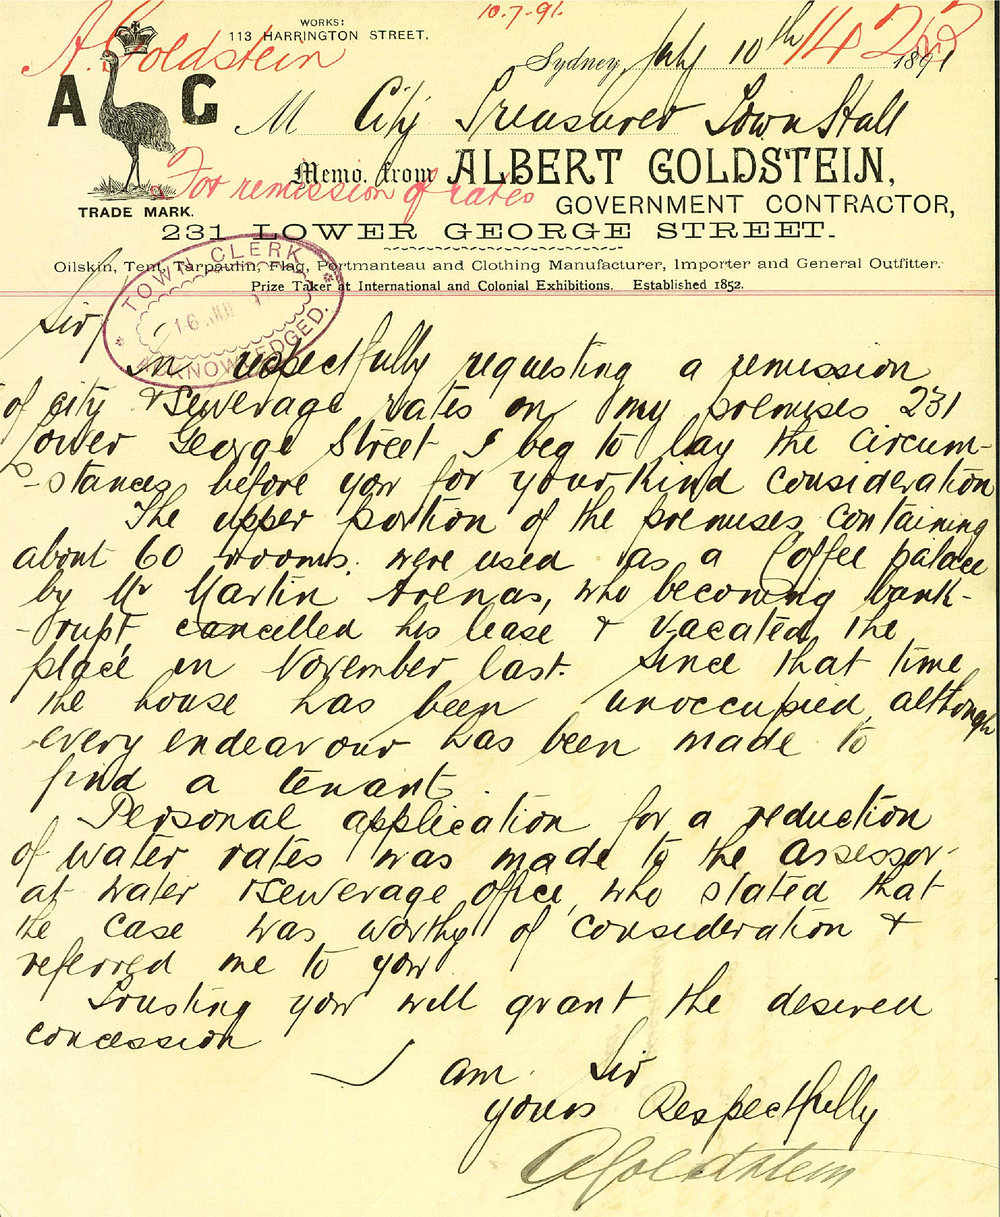 10.7.91.
A. Goldstein
WORKS:
113 HARRINGTON STREET.
Sydney, July 10th 1891
A G
M City Treasurer Town Hall
For remission of rates
Memo. from ALBERT GOLDSTEIN,
GOVERNMENT CONTRACTOR,
TRADE MARK.
231 LOWER GEORGE STREET.
Oilskin, Tent, Tarpaulin, Flag, Portmanteau and Clothing Manufacturer, Importer and General Outfitter.
Prize Taker at International and Colonial Exhibitions. Established 1852.
TOWN CLERK
16
ACKNOWLEDGED.
Sir,
In respectfully requesting a remission
of city & Sewerage rates on my premises 231
Lower George Street I beg to lay the circum-
-stances before you for your kind consideration
The upper portion of the premises containing
about 60 rooms. were used as a Coffee palace
by Mr Martin Arenas, who becoming bank-
-rupt, cancelled his lease & vacated the
place in November last. Since that time
the house has been unoccupied although
every endeavour has been made to
find a tenant.
Personal application for a reduction
of water rates was made to the assessor-
at water & Sewerage office, who stated that
the case was worthy of consideration &
referred me to you
Trusting you will grant the desired
concession
I am Sir
yours Respectfully
A Goldstein